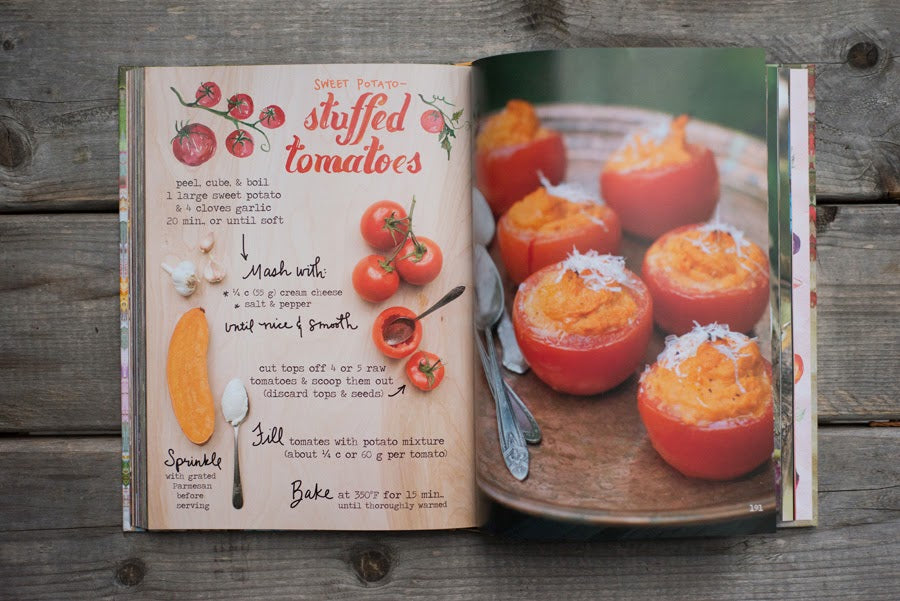 SWEET POTATO-
stuffed
tomatoes
peel, cube, & boil
1 large sweet potato
& 4 cloves garlic
20 min., or until soft
Mash with:
* ¼ c (55 g) cream cheese
* salt & pepper
until nice & smooth
cut tops off 4 or 5 raw
tomatoes & scoop them out
(discard tops & seeds)
Fill tomatoes with potato mixture
(about ¼ c or 60 g per tomato)
Sprinkle
with grated
Parmesan
before
serving
Bake at 350°F for 15 min.,
until thoroughly warmed
191